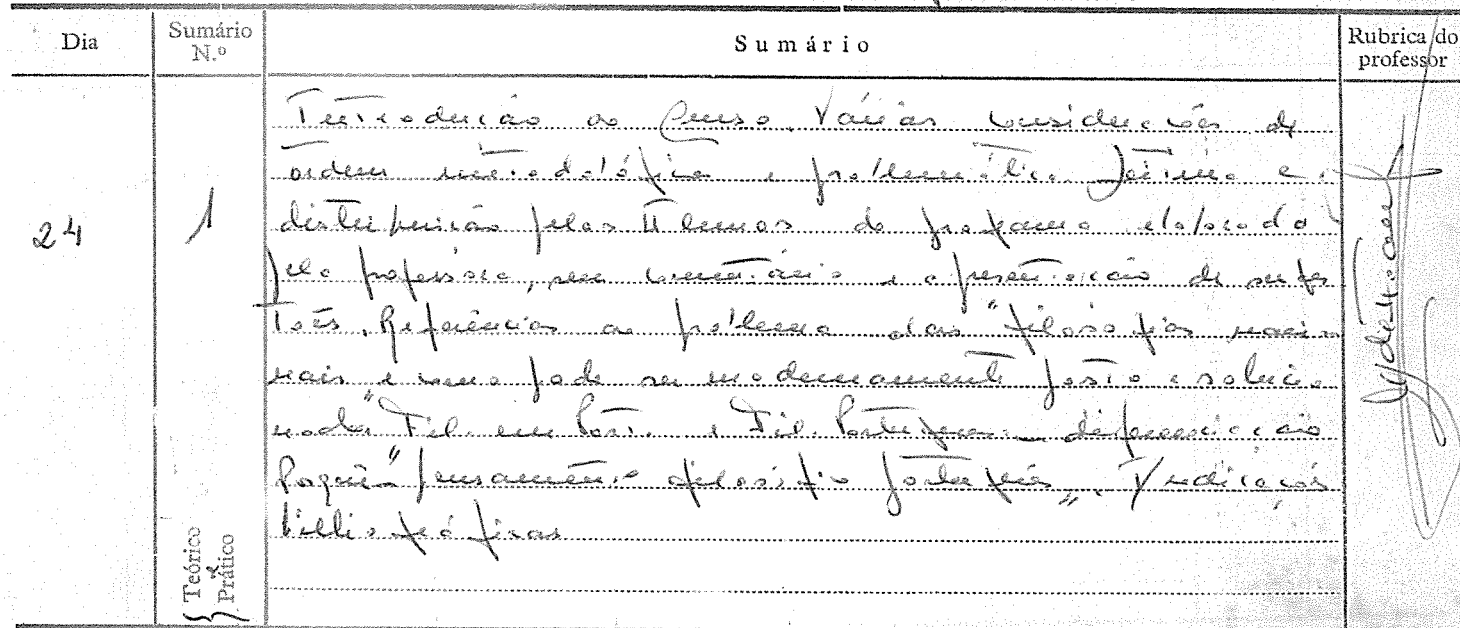 Dia
Sumário N.º
Sumário
Rubrica do professor
24
1
Introdução ao Curso. Várias considerações de
ordem metodológica e problemática. Leitura e
distribuição pelos temas do programa elaborado
pelo professor, seu comentário e apresentação de suges
tões. Referências ao problema das "filosofias nacio
nais" e como pode ser modernamente posto e solucio
nado. "Fil. em Port." e Fil. Portuguesa diferenciação
Porquê "pensamento filosófico português". Indicações
bibliográficas
Teórico e Prático